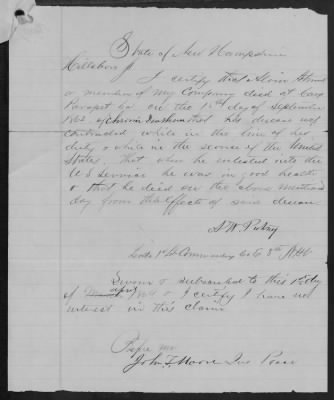 State of New Hampshire
Hillsboro
I certify that Alvin
a member of my Company died at Camp
Parapet La on the 15th day of September
1862 of Chronic Diarrhoea that his disease was
contracted while in the line of his
duty & while in the service of the United
States, that when he enlisted into the
U S Service he was in good health
& that he died on the above mentioned
day from the effects of said disease

Sworn & subscribed to this day
of & I certify I have no
interest in this claim
Before me
John F. Moore Jus Peace